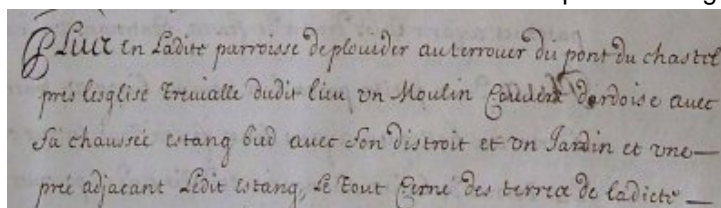 Plus en Ladite parroisse de plouider au terrouer du pont du chastel
pres lesglise treuialle dudit lieu vn Moulin Couuert dardoise avec
sa chaussee estang bied avec son distroit et vn Jardin et vne
pree adjacant Ledit estang, Le tout Cerné des terres de ladicte